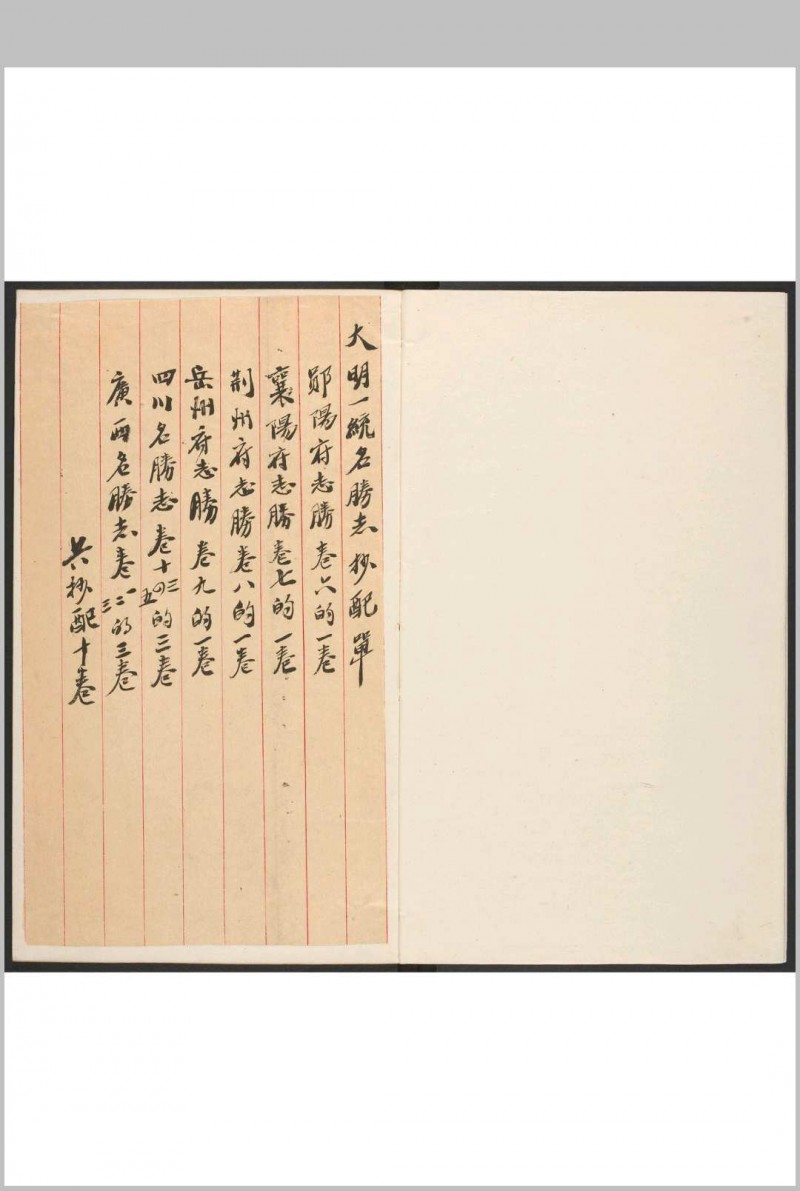 大明一統名勝志抄配單
鄖陽府志勝卷六的一卷
襄陽府志勝卷七的一卷
荆州府志勝卷八的一卷
岳州府志勝卷九的一卷
四川名勝志卷十三四五的三卷
廣西名勝志卷一二三的三卷
共抄配十卷